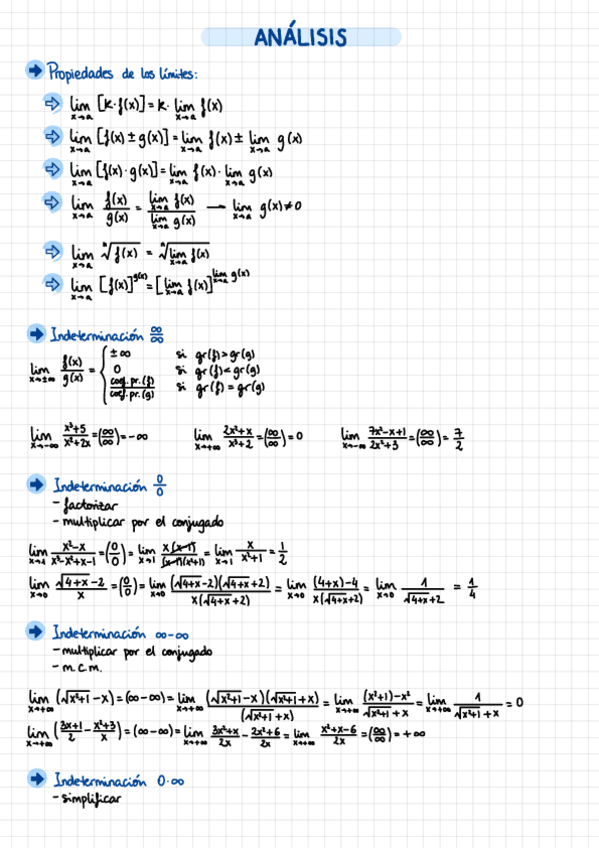 ANÁLISIS
➡ Propiedades de los límites:
⇨ lim x→a [k·f(x)] = k· lim x→a f(x)
⇨ lim x→a [f(x) ± g(x)] = lim x→a f(x) ± lim x→a g(x)
⇨ lim x→a [f(x)·g(x)] = lim x→a f(x) · lim x→a g(x)
⇨ lim x→a f(x)/g(x) = lim x→a f(x) / lim x→a g(x) — lim x→a g(x) ≠ 0
⇨ lim x→a ⁿ√f(x) = ⁿ√(lim x→a f(x))
⇨ lim x→a [f(x)]^g(x) = [lim x→a f(x)]^(lim x→a g(x))
➡ Indeterminación ∞/∞
lim x→±∞ f(x)/g(x) = {
±∞ si gr(f)>gr(g)
0 si gr(f)<gr(g)
coef.pr.(f)/coef.pr.(g) si gr(f)=gr(g)
lim x→-∞ (x³+5)/(x²+2x) = (∞/∞) = -∞ lim x→+∞ (2x²+x)/(x³+2) = (∞/∞) = 0 lim x→-∞ (7x²-x+1)/(2x²+3) = (∞/∞) = 7/2
➡ Indeterminación 0/0
- factorizar
- multiplicar por el conjugado
lim x→1 (x²-x)/(x³-x²+x-1) = (0/0) = lim x→1 x(x-1)/((x-1)(x²+1)) = lim x→1 x/(x²+1) = 1/2
lim x→0 (√(4+x)-2)/x = (0/0) = lim x→0 (√(4+x)-2)(√(4+x)+2)/(x(√(4+x)+2)) = lim x→0 ((4+x)-4)/(x(√(4+x)+2)) = lim x→0 1/(√(4+x)+2) = 1/4
➡ Indeterminación ∞-∞
- multiplicar por el conjugado
- m.c.m.
lim x→+∞ (√(x²+1) - x) = (∞-∞) = lim x→+∞ (√(x²+1)-x)(√(x²+1)+x)/(√(x²+1)+x) = lim x→+∞ ((x²+1)-x²)/(√(x²+1)+x) = lim x→+∞ 1/(√(x²+1)+x) = 0
lim x→+∞ ((3x+1)/2 - (x²+3)/x) = (∞-∞) = lim x→+∞ (3x²+x)/2x - (2x²+6)/2x = lim x→+∞ (x²+x-6)/2x = (∞/∞) = +∞
➡ Indeterminación 0·∞
- simplificar